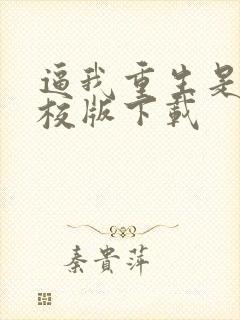 逼我重生是
校版下載
秦貴萍